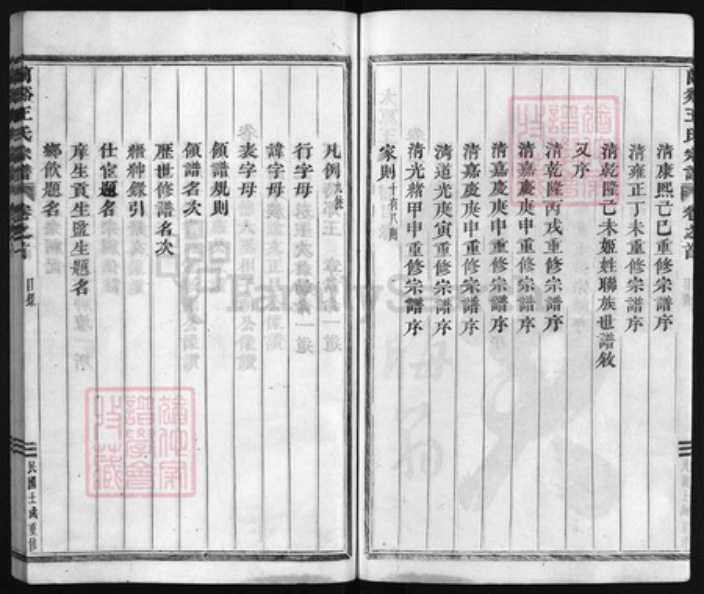 清康熙己巳重修宗譜序
清雍正丁未重修宗譜序
清乾隆己未姬姓聯族世譜敘
又序
清乾隆丙戌重修宗譜序
清嘉慶庚申重修宗譜序
清嘉慶庚申重修宗譜序
清嘉慶庚申重修宗譜序
清道光庚寅重修宗譜序
清光緒甲申重修宗譜序
家則十有八則
凡例九條
行字母
諱字母
表字母
領譜規則
領譜名次
歷世修譜名次
縉紳錄引
仕宦題名
庠生貢生監生題名
鄉飲題名
王氏宗譜 卷之首 目錄
民國壬戌重修